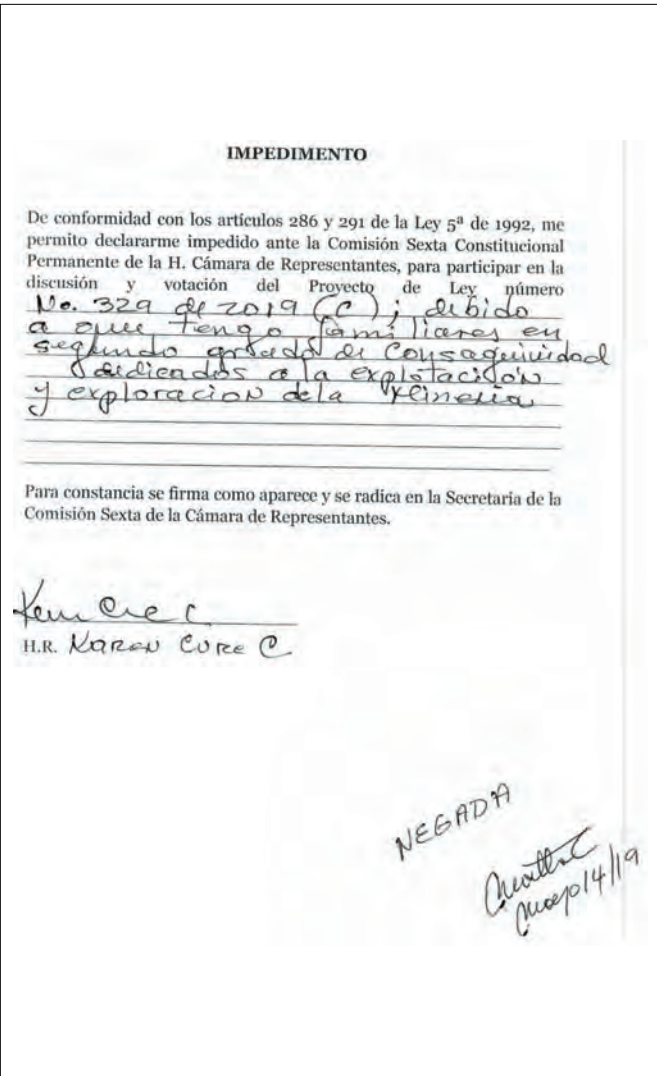 IMPEDIMENTO
De conformidad con los artículos 286 y 291 de la Ley 5ª de 1992, me
permito declararme impedido ante la Comisión Sexta Constitucional
Permanente de la H. Cámara de Representantes, para participar en la
discusión y votación del Proyecto de Ley número
No. 329 de 2019 (C); debido
a que tengo familiares en
segundo grado de Consaguinidad
dedicados a la explotación
y exploracion de la Mineria
Para constancia se firma como aparece y se radica en la Secretaria de la
Comisión Sexta de la Cámara de Representantes.
H.R. KAREN CURE C
NEGADA
14/19